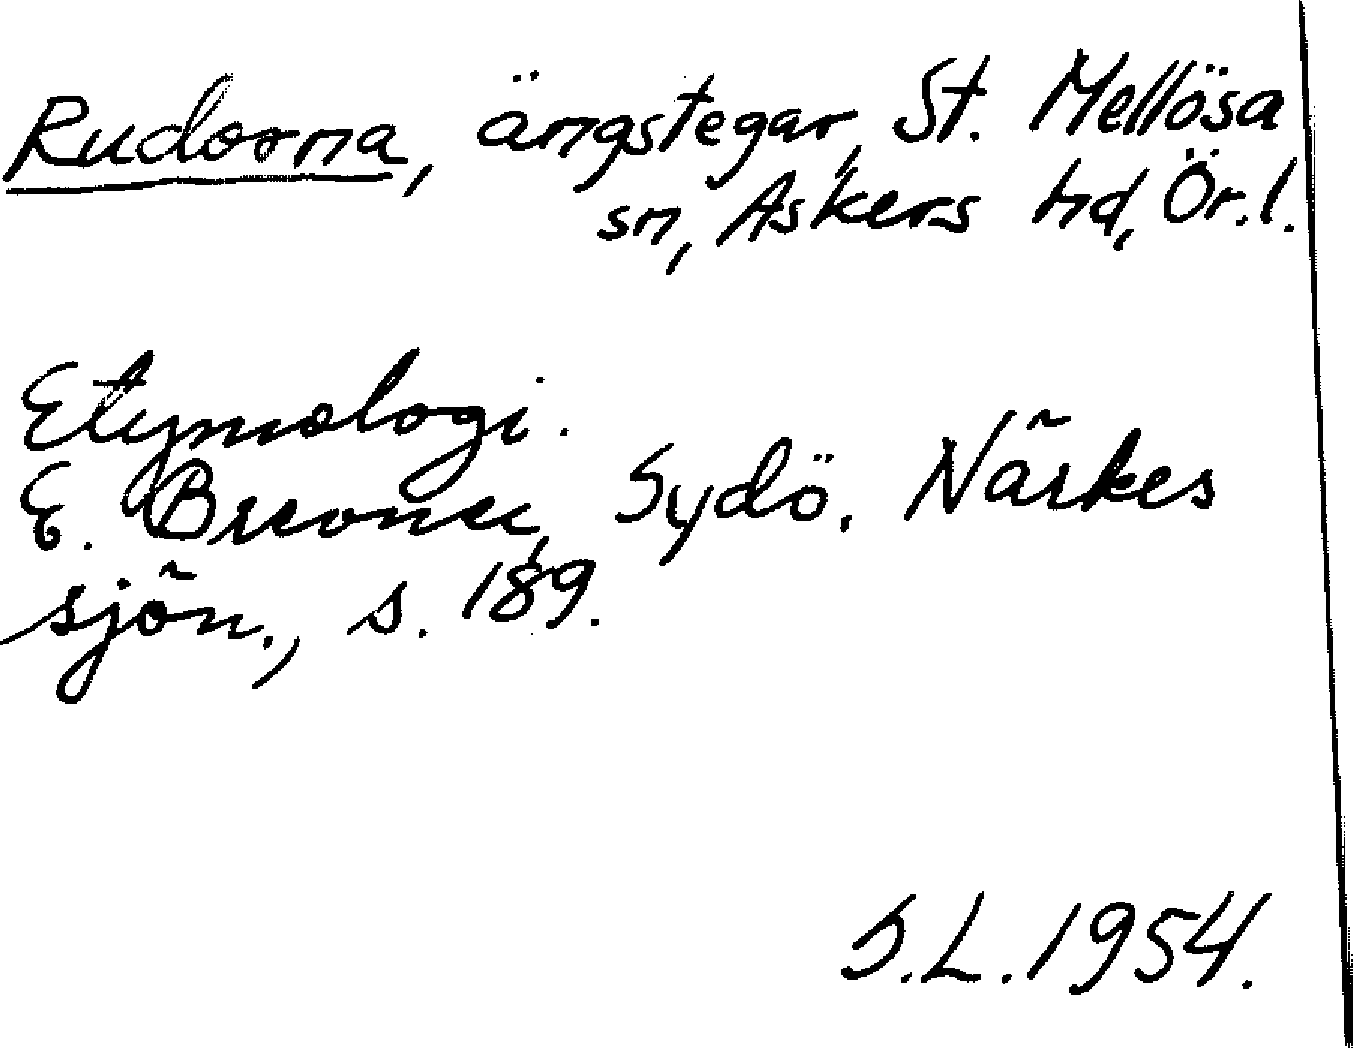 Rudorna, ängstegar, St. Mellösa
sn, Askers hd, Ör. l.
Etymologi.
E. Brevner, Sydö. Närkes
sjön., s. 189.
S.L. 1954.